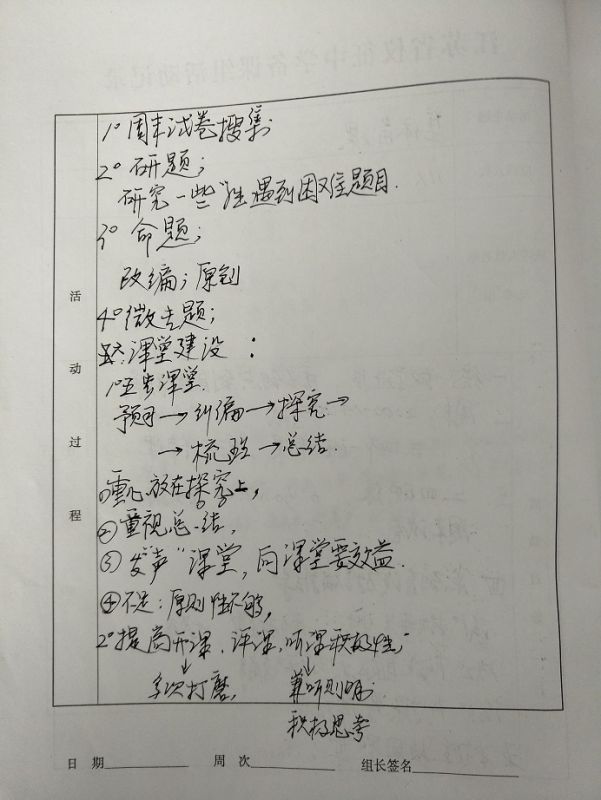 1° 周末试卷搜集;
2° 研题;
研究一些"生遇到困难题目.
3° 命题;
改编; 原创
4° 微专题;
五: 课堂建设:
1° 五步课堂.
预习→纠偏→探究→
→梳理→总结.
①重心放在探究上,
②重视总结,
③"发声"课堂, 向课堂要效益.
④不足: 原则性不够,
2° 提高开课、评课、听课积极性;
多次打磨, 兼听则明
积极思考
活动过程
日 期 周 次 组长签名